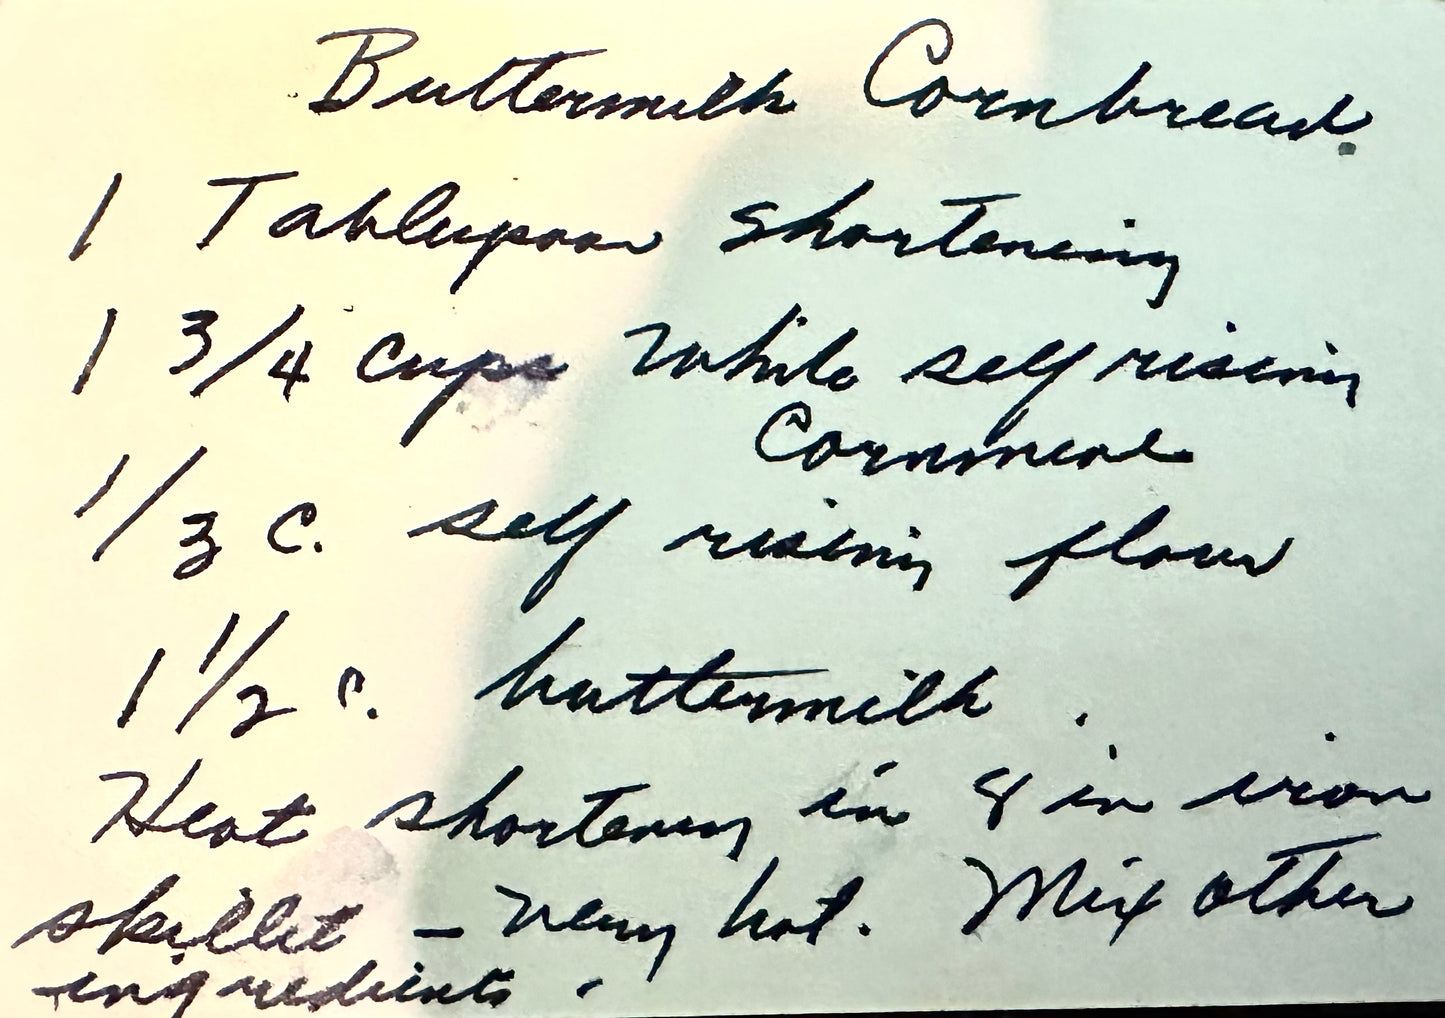 Buttermilk Cornbread.
1 Tablespoon shortening
1 3/4 cups White self rising
Cornmeal
1/3 c. self rising flour
1 1/2 c. buttermilk.
Heat shortening in 8 in iron
skillet - very hot. Mix other
ingredients.